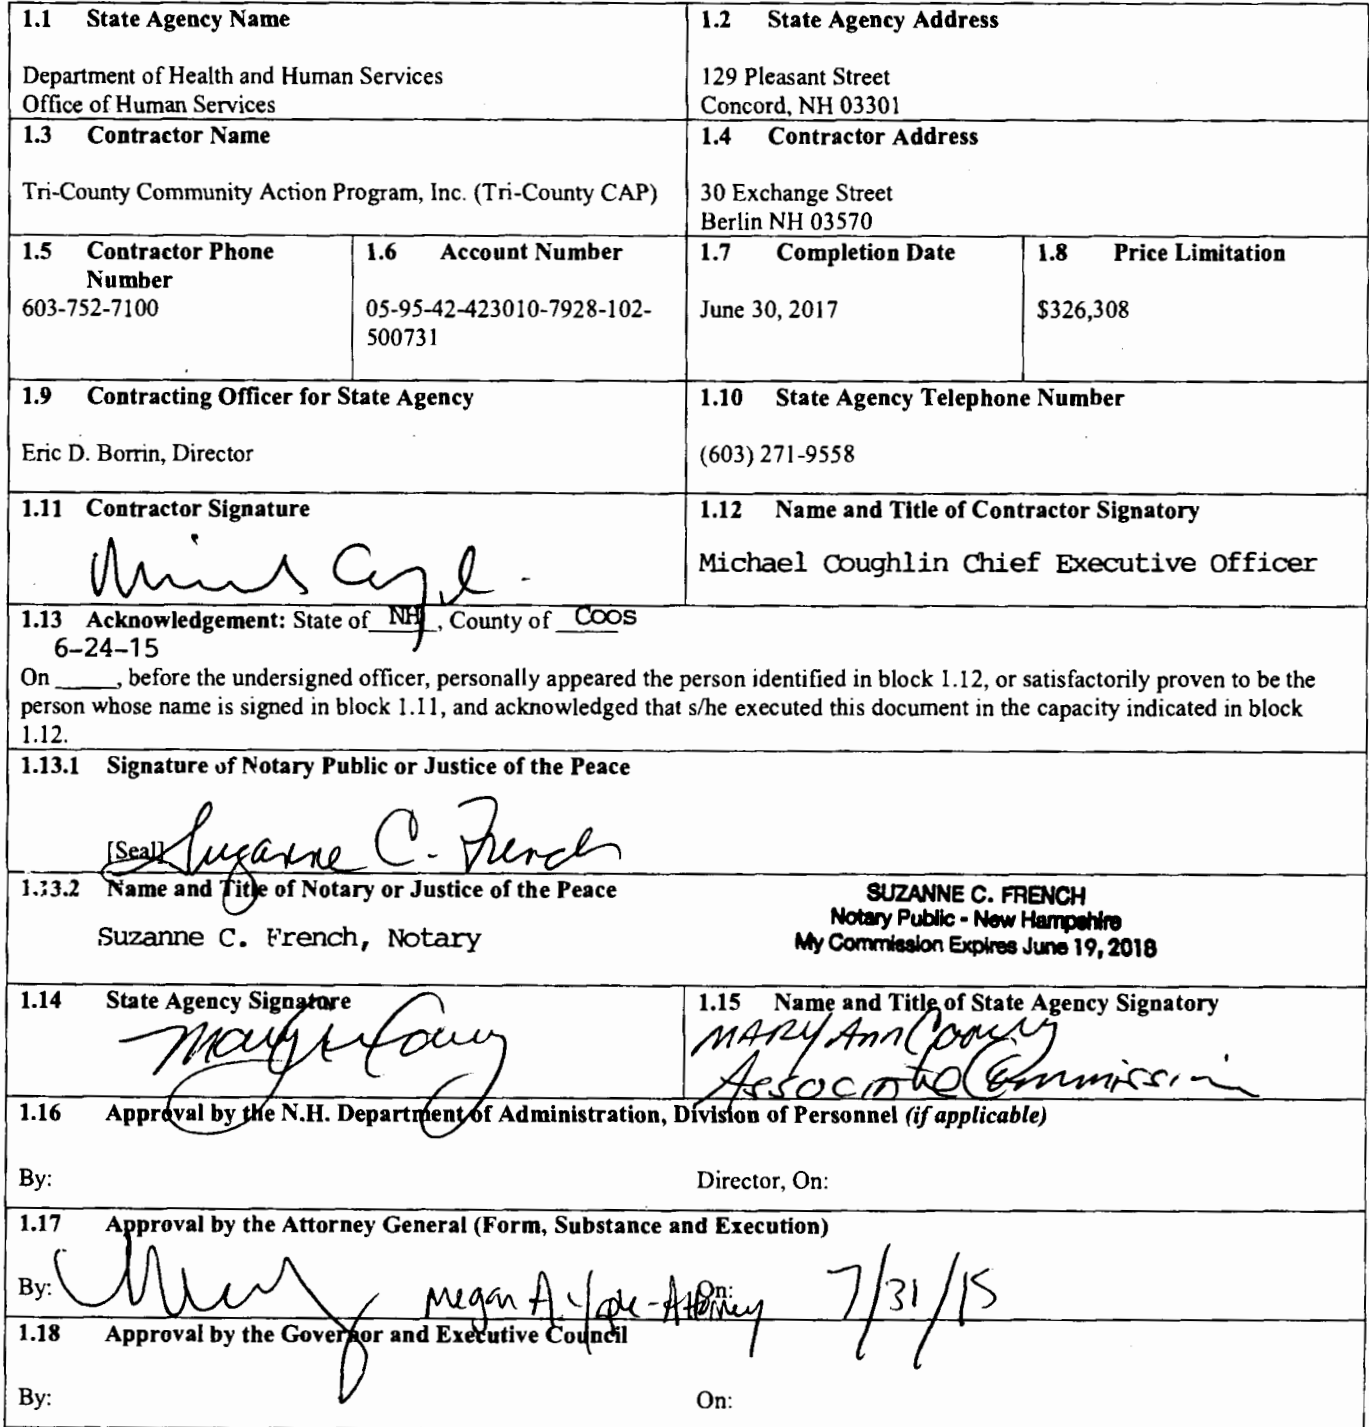 1.1 State Agency Name
Department of Health and Human Services
Office of Human Services
1.2 State Agency Address
129 Pleasant Street
Concord, NH 03301
1.3 Contractor Name
Tri-County Community Action Program, Inc. (Tri-County CAP)
1.4 Contractor Address
30 Exchange Street
Berlin NH 03570
1.5 Contractor Phone
Number
603-752-7100
1.6 Account Number
05-95-42-423010-7928-102-
500731
1.7 Completion Date
June 30, 2017
1.8 Price Limitation
$326,308
1.9 Contracting Officer for State Agency
Eric D. Borrin, Director
1.10 State Agency Telephone Number
(603) 271-9558
1.11 Contractor Signature
1.12 Name and Title of Contractor Signatory
Michael Coughlin Chief Executive Officer
1.13 Acknowledgement: State of NH, County of Coos
6-24-15
On _____, before the undersigned officer, personally appeared the person identified in block 1.12, or satisfactorily proven to be the
person whose name is signed in block 1.11, and acknowledged that s/he executed this document in the capacity indicated in block
1.12.
1.13.1 Signature of Notary Public or Justice of the Peace
[Seal] Suzanne C. French
1.13.2 Name and Title of Notary or Justice of the Peace
Suzanne C. French, Notary
SUZANNE C. FRENCH
Notary Public - New Hampshire
My Commission Expires June 19, 2018
1.14 State Agency Signature
1.15 Name and Title of State Agency Signatory
Mary Ann Cooney
Associate Commission
1.16 Approval by the N.H. Department of Administration, Division of Personnel (if applicable)
By:
Director, On:
1.17 Approval by the Attorney General (Form, Substance and Execution)
By: Megan A. Yaple - Attorney On: 7/31/15
1.18 Approval by the Governor and Executive Council
By:
On: